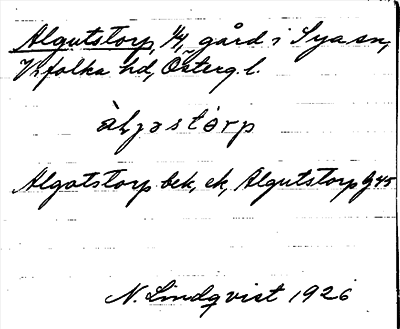 Algutstorp, 1/4, gård i Sya sn,
Vifolka hd, Österg. l.
àl̜jəstòrp
Algotstorp bek, ek, Algutstorp Jb 45
N. Lindqvist 1926